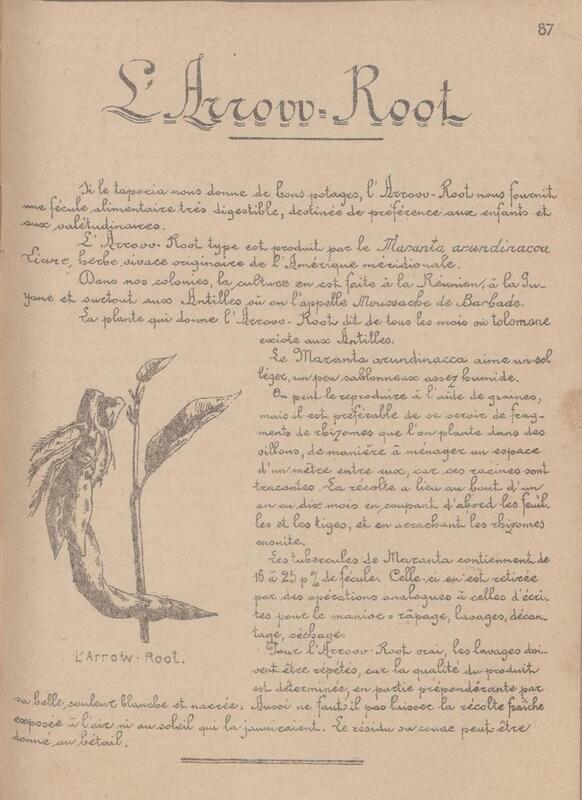 87
L'Arrow-Root
Si le tapocia nous donne de bons potages, l'Arrow-Root nous fournit
une fécule alimentaire très digestible, destinée de préférence aux enfants et
aux valétudinaires.
L'Arrow-Root type est produit par le Maranta arundinacea
herbe vivace originaire de l'Amérique méridionale.
Dans nos colonies, la culture en est faite à la Réunion, à la Gu-
yane et surtout aux Antilles où on l'appelle Moussache de Barbade.
La plante qui donne l'Arrow-Root dit de tous les mois ou tolomane
existe aux Antilles.
Le Maranta arundinacea aime un sol
léger, un peu sablonneux assez humide.
On peut le reproduire à l'aide de graines,
mais il est préférable de se servir de frag-
ments de rhizomes que l'on plante dans des
sillons, de manière à ménager un espace
d'un mètre entre eux, car ces racines sont
tracantes. La récolte a lieu au bout d'un
an ou dix mois en coupant d'abord les feuil-
les et les tiges, et en arrachant les rhizomes
ensuite.
Les tubercules de Maranta contiennent de
16 à 25 p % de fécule. Celle-ci en est retirée
par des opérations analogues à celles d'écri-
tes pour le manioc = râpage, lavages, décan-
tage, séchage.
Pour l'Arrow-Root vrai, les lavages doi-
vent être répétés, car la qualité du produit
est déterminée, en partie prépondérante par
sa belle couleur blanche et nacrée. Aussi ne faut il pas laisser la récolte fraîche
exposée à l'air ni au soleil qui la jauniraient. Le résidu ou couac peut être
donné au bétail.
L'Arrow-Root.